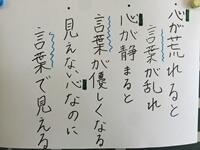 心が荒れると
言葉が乱れ
心が静まると
言葉が優しくなる
見えない心なのに
言葉で見える